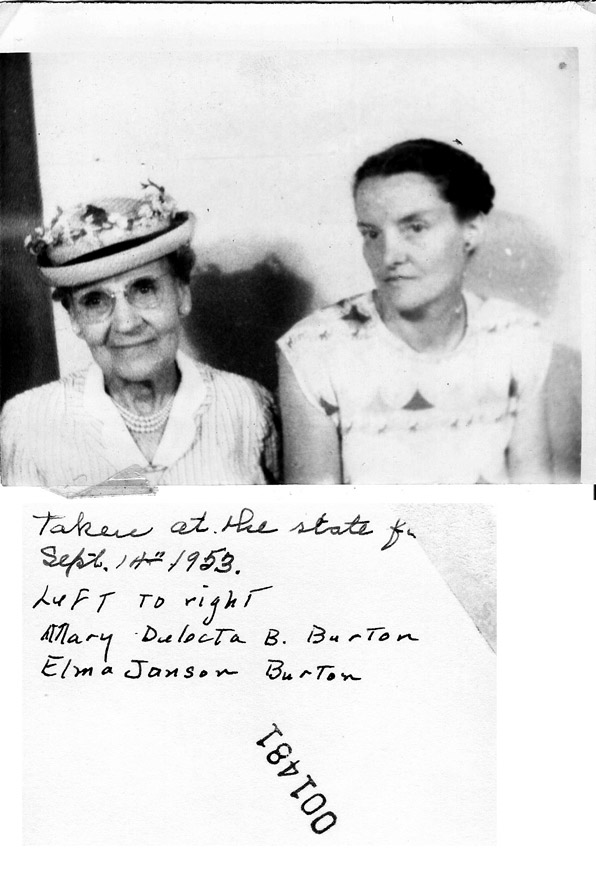 Taken at the state
Sept. 14th 1953.
LeFT To righT
Mary Dulecta B. BurTon
Elma Janson BurTon
001481